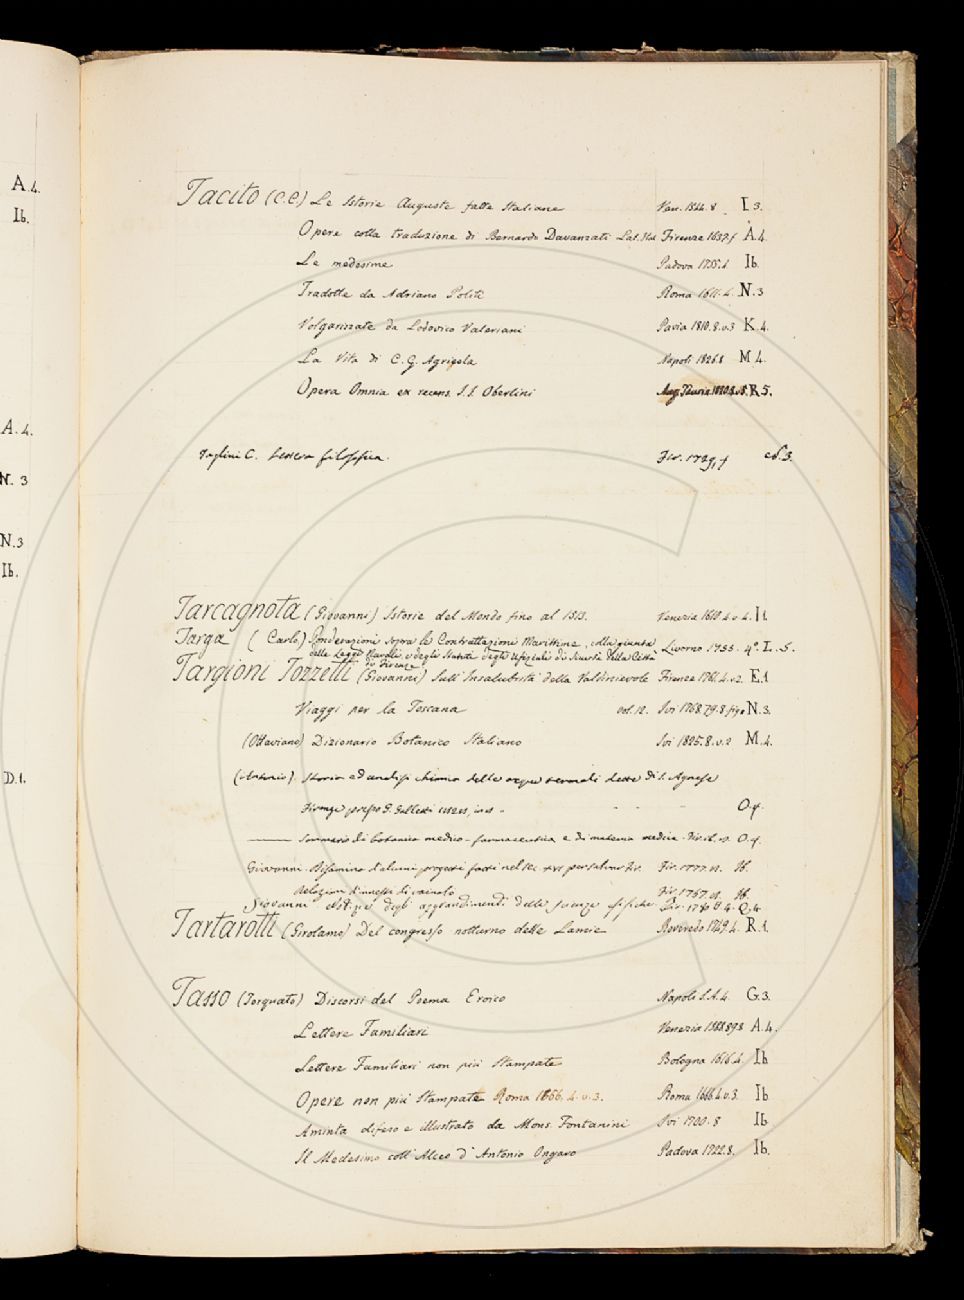 A.4.
Ib.
A.4.
N.3
N.3
Ib.
D.1.
Tacito (C.C.) Le Istorie Auguste fatte Italiane Ven. 1544.8 I 3.
Opere colla traduzione di Bernardo Davanzati Lat. Ital Firenze 1637.f A.4.
Le medesime Padova 1755.4 Ib.
Tradotte da Adriano Politi Roma 1611.4. N.3
Volgarizzate da Lodovico Valeriani Pavia 1810.8.v.3 K.4.
La Vita di C.G. Agricola Napoli 1826.8 M.4.
Opera Omnia ex recens. J.J. Oberlini R 5.
Taglini C. Lettera filosofica. Fir. 1729, f 3.
Tarcagnota (Giovanni) Istorie del Mondo fino al 1513. Venezia 1610.4.v.4. I 1
Targa (Carlo) Ponderazioni sopra le Contrattazioni Marittime, colla giunta Livorno 1755. 4º. L. 5.
delle Leggi Navali, e degli Statuti degli Ufiziali di Sicurtà della Città
di Firenze
Targioni Tozzetti (Giovanni) Sull' Insalubrità della Valdinievole Firenze 1761.4.v.2. E.1
Viaggi per la Toscana vol. 12. Ivi 1768.79.8.fig. N.3.
(Ottaviano) Dizionario Botanico Italiano Ivi 1825.8.v.2 M.4.
(Antonio). Storia ed analisi chimica delle acque termali dette di S. Agnese
Firenze presso G. Galletti in 8 O.4.
Sommario di botanica medico-farmaceutica e di materia medica - Fir. O.4.
Giovanni. Disamina d'alcuni progetti fatti nel sec. XVI per salvar Fir. Fir. 1777.
Relazioni d'innesti di vaiuolo Fir. 1757.
Giovanni Notizie degli aggrandimenti delle scienze fisiche. Fir. 1780 4. Q.4.
Tartarotti (Girolamo) Del congresso notturno delle Lamie Roveredo 1749.4. R.1.
Tasso (Torquato) Discorsi del Poema Eroico Napoli S.A.4. G.3.
Lettere Familiari Venezia 1588 A.4.
Lettere Familiari non più Stampate Bologna 1616.4. Ib
Opere non più Stampate Roma 1666.4.v.3. Roma 1666.4.v.3. Ib
Aminta difeso e illustrato da Mons. Fontanini Ivi 1700.8 Ib
Il Medesimo coll' Alceo d' Antonio Ongaro Padova 1722.8. Ib.